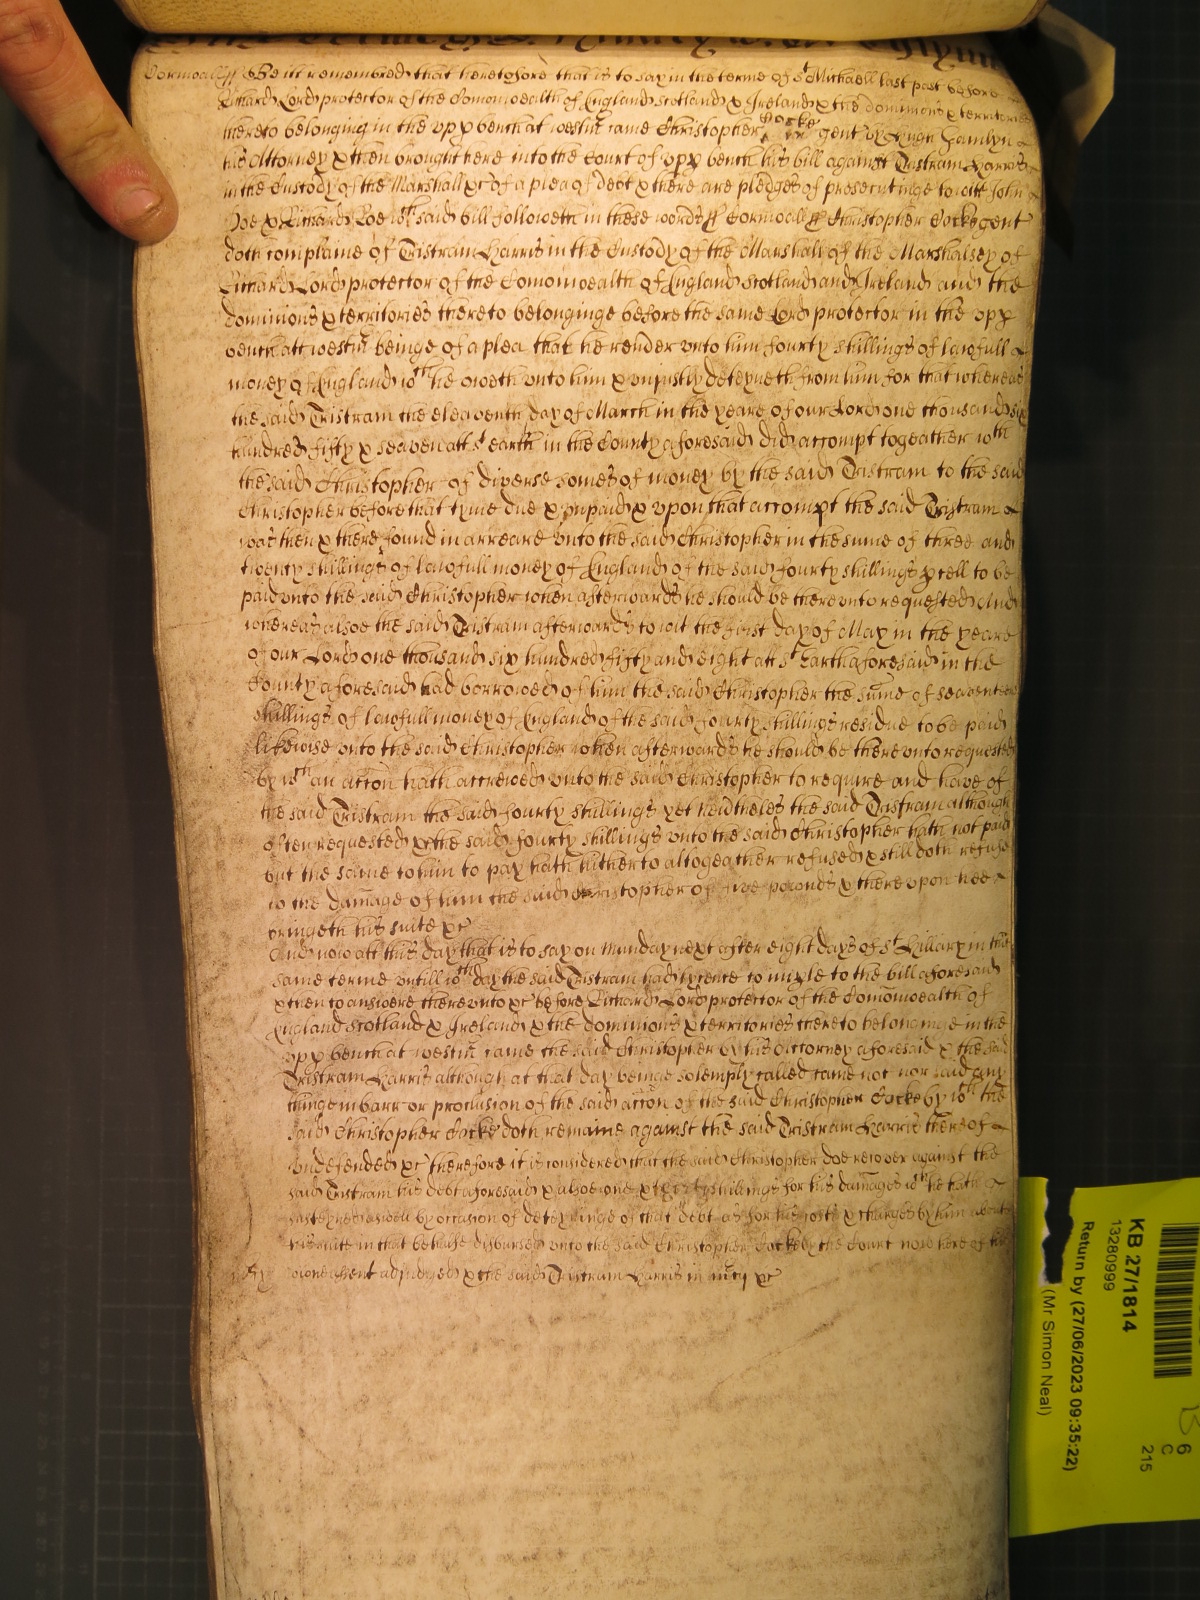 Cornwall ss Be itt remembred that heretofore that is to say in the terme of St Michaell last past before
Richard Lord protector of the Comonwealth of England Scotland & Ireland & the dominions & territories
thereto belonging in the upp bench at westm came Christopher Cocke gent by Hugh Hamlyn
his Attorney & then brought here into the Court of upp bench his bill against Tristram Harris
in the Custody of the Marshall &c of a plea of debt & there are pledges of prosecutinge to witt John
Doe & Richard Roe wch said bill followeth in these words ss Cornwall ss Christopher Cocke gent
doth complaine of Tristram Harris in the Custody of the Marshall of the Marshalsey of
Richard Lord protector of the Comonwealth of England Scotland and Ireland and the
dominions & territories thereto belonginge before the same Lord protector in the upp
bench att westm beinge of a plea that he render unto him fourty shillings of lawfull
money of England wch he oweth unto him & unjustly deteyneth from him for that whereas
the said Tristram the eleaventh day of March in the yeare of our Lord one thousand six
hundred fifty & seaven att St earth in the County aforesaid did accompt togeather wth
the said Christopher of diverse somes of money by the said Tristram to the said
Christopher before that tyme due & unpaid & upon that accompt the said Tristram
was then & there found in arreare unto the said Christopher in the sume of three and
twenty shillings of lawfull money of England of the said fourty shillings pcell to be
paid unto the said Christopher when afterwards he should be there unto requested And
whereas alsoe the said Tristram afterwards to wit the first day of May in the yeare
of our Lord one thousand six hundred fifty and eight att St Earth aforesaid in the
County aforesaid had borrowed of him the said Christopher the sume of seaventeen
shillings of lawfull money of England of the said fourty shillings residue to be paid
likewise unto the said Christopher when afterwards he should be there unto requested
by wch an accon hath accrewed unto the said Christopher to require and have of
the said Tristram the said fourty shillings yet neidtheles the said Tristram although
often requested &c the said fourty shillings unto the said Christopher hath not paid
but the same to him to pay hath hitherto altogeather refused & still doth refuse
to the damage of him the said Christopher of five pounds & there upon hee
bringeth his suite &c
And now att this day that is to say on Munday next after eight days of St Hillary in this
same terme untill wch day the said Tristram had lycence to imple to the bill aforesaid
& then to answere there unto &c before Richard Lord protector of the Comonwealth of
England Scotland & Ireland & the dominions & territories thereto belonginge in the
upp bench at westm came the said Christopher by his Attorney aforesaid & the said
Tristram Harris although at that day beinge solemply called came not nor said any
thinge in barr or preclusion of the said accon of the said Christopher Cocke by wch the
said Christopher Cocke doth remaine against the said Tristram Harris thereof
undefended &c therefore it is considered that the said Christopher doe recover against the
said Tristram his debt aforesaid & alsoe one & thirty shillings for his damages wch he hath
susteyned aswell by occasion of deteyninge of that debt as for his costs & charges by him about
his suite in that behalfe disbursed unto the said Christopher Cocke by the Court now here of his
owne assent adjudged & the said Tristram Harris in mcy &c
mcy
KB 27/1814
13280999
Return by (27/06/2023 09:35:22)
(Mr Simon Neal)
6
C
215